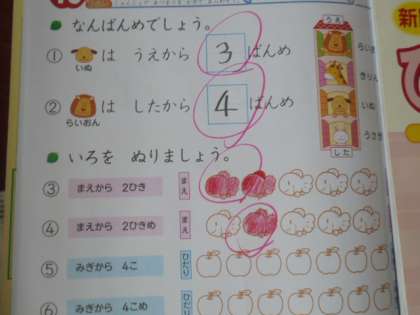 なんばんめでしょう。
① は うえから 3 ばんめ
いぬ
② は したから 4 ばんめ
らいおん
うえ
らいお
きりん
いぬ
うさ
した
いろを ぬりましょう。
③ まえから 2ひき まえ
④ まえから 2ひきめ まえ
⑤ みぎから 4こ ひだり
⑥ みぎから 4こめ ひだり
新